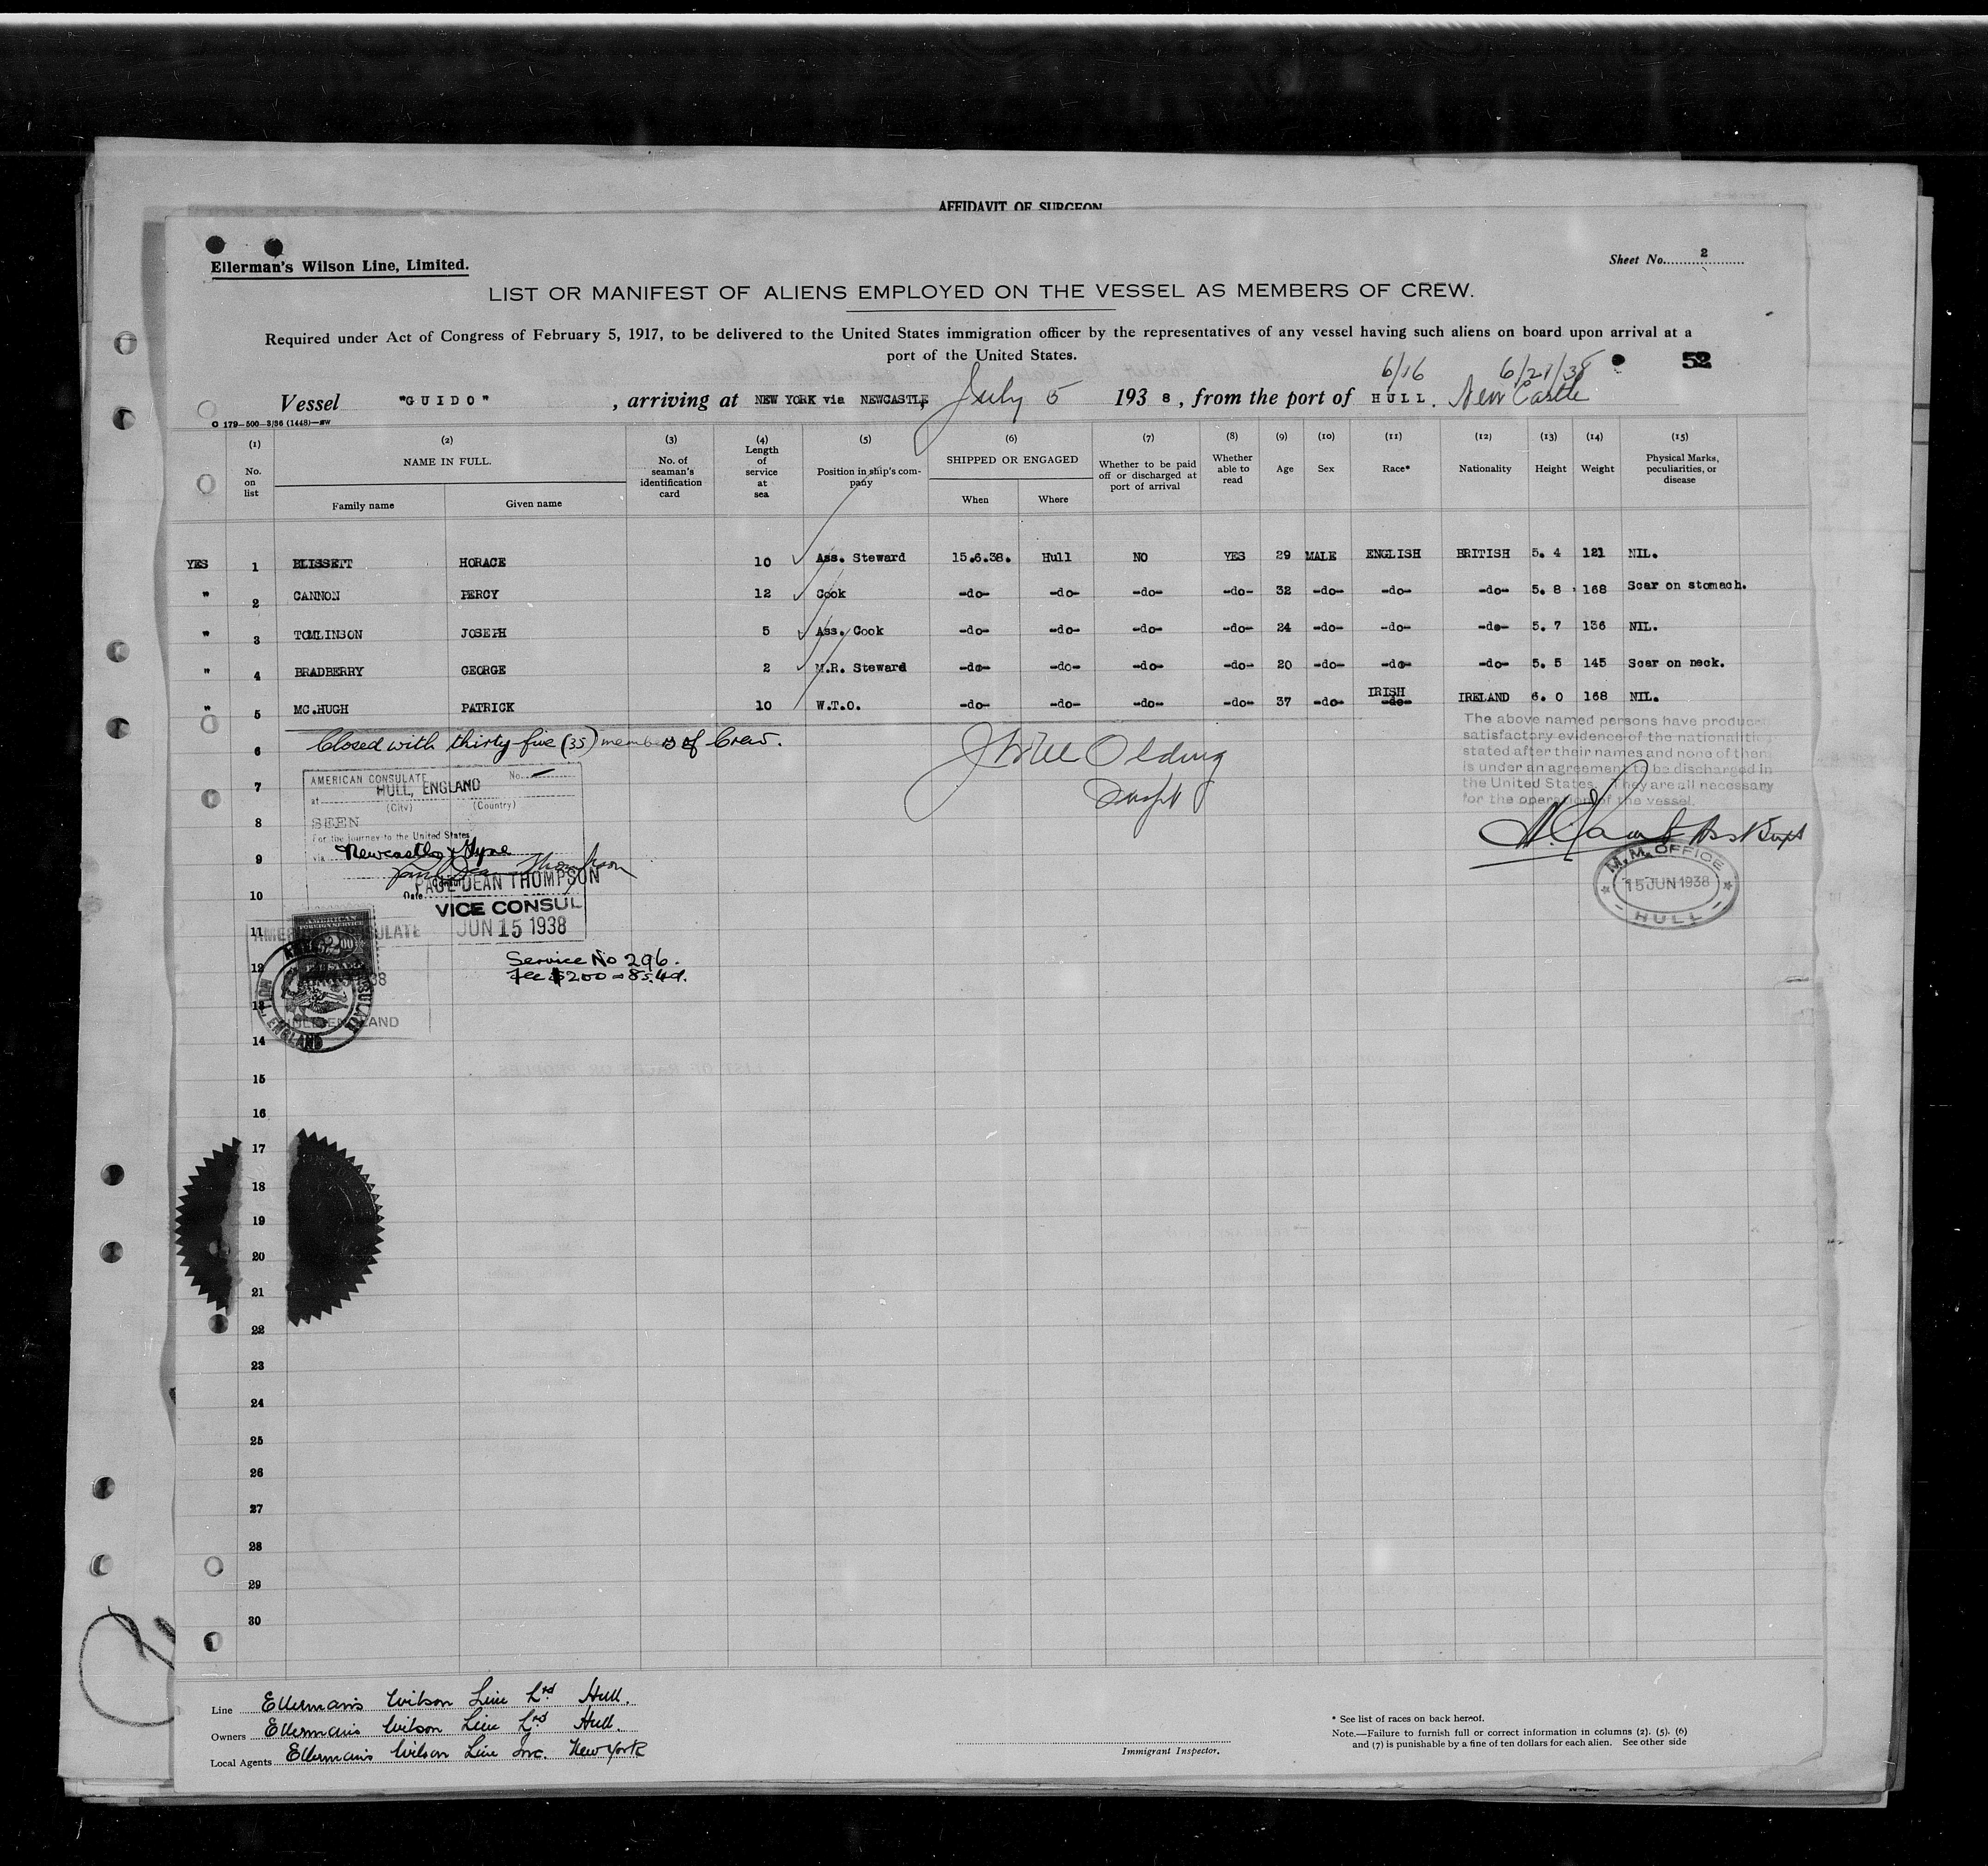 AFFIDAVIT OF SURGEON
Ellerman's Wilson Line, Limited.
Sheet No. 2
LIST OR MANIFEST OF ALIENS EMPLOYED ON THE VESSEL AS MEMBERS OF CREW.
Required under Act of Congress of February 5, 1917, to be delivered to the United States immigration officer by the representatives of any vessel having such aliens on board upon arrival at a
port of the United States.
6/16 6/21/38 52
Vessel "GUIDO", arriving at NEW YORK via NEWCASTLE, July 5 1938, from the port of HULL. New Castle
O 179-500-3/36 (1448)-NW
(1) (2) (3) (4) (5) (6) (7) (8) (9) (10) (11) (12) (13) (14) (15)
No. on list NAME IN FULL. Family name Given name No. of seaman's identification card Length of service at sea Position in ship's company SHIPPED OR ENGAGED When Where Whether to be paid off or discharged at port of arrival Whether able to read Age Sex Race* Nationality Height Weight Physical Marks, peculiarities, or disease
YES 1 BLISSETT HORACE 10 Ass. Steward 15.6.38. Hull NO YES 29 MALE ENGLISH BRITISH 5. 4 121 NIL.
" 2 CANNON PERCY 12 Cook -do- -do- -do- -do- 32 -do- -do- -do- 5. 8 168 Scar on stomach.
" 3 TOMLINSON JOSEPH 5 Ass. Cook -do- -do- -do- -do- 24 -do- -do- -do- 5. 7 136 NIL.
" 4 BRADBERRY GEORGE 2 M.R. Steward -do- -do- -do- -do- 20 -do- -do- -do- 5. 5 145 Scar on neck.
" 5 MC.HUGH PATRICK 10 W.T.O. -do- -do- -do- -do- 37 -do- IRISH -do- IRELAND 6. 0 168 NIL.
6 Closed with thirty five (35) members of Crew.
Olding
The above named persons have produced
satisfactory evidence of the nationalities
stated after their names and none of them
is under an agreement to be discharged in
the United States. They are all necessary
for the operation of the vessel.
Supt
M.M. OFFICE
15 JUN 1938
HULL
AMERICAN CONSULATE No.
7 at HULL, ENGLAND
(City) (Country)
8 SEEN
For the journey to the United States
9 via Newcastle Tyne
Thompson
10 Date PAGE DEAN THOMPSON
VICE CONSUL
11 JUN 15 1938
AMERICAN CONSULATE
AMERICAN FOREIGN SERVICE
$2.00
12 Service No 296.
Fee $2.00 = 8s.4d.
13
HULL, ENGLAND
14
15
16
17
18
19
20
21
22
23
24
25
26
27
28
29
30
Line Ellermans Wilson Line Ltd Hull.
Owners Ellermans Wilson Line Ltd Hull.
Local Agents Ellermans Wilson Line Inc. New York
Immigrant Inspector.
* See list of races on back hereof.
Note.—Failure to furnish full or correct information in columns (2), (5), (6)
and (7) is punishable by a fine of ten dollars for each alien. See other side